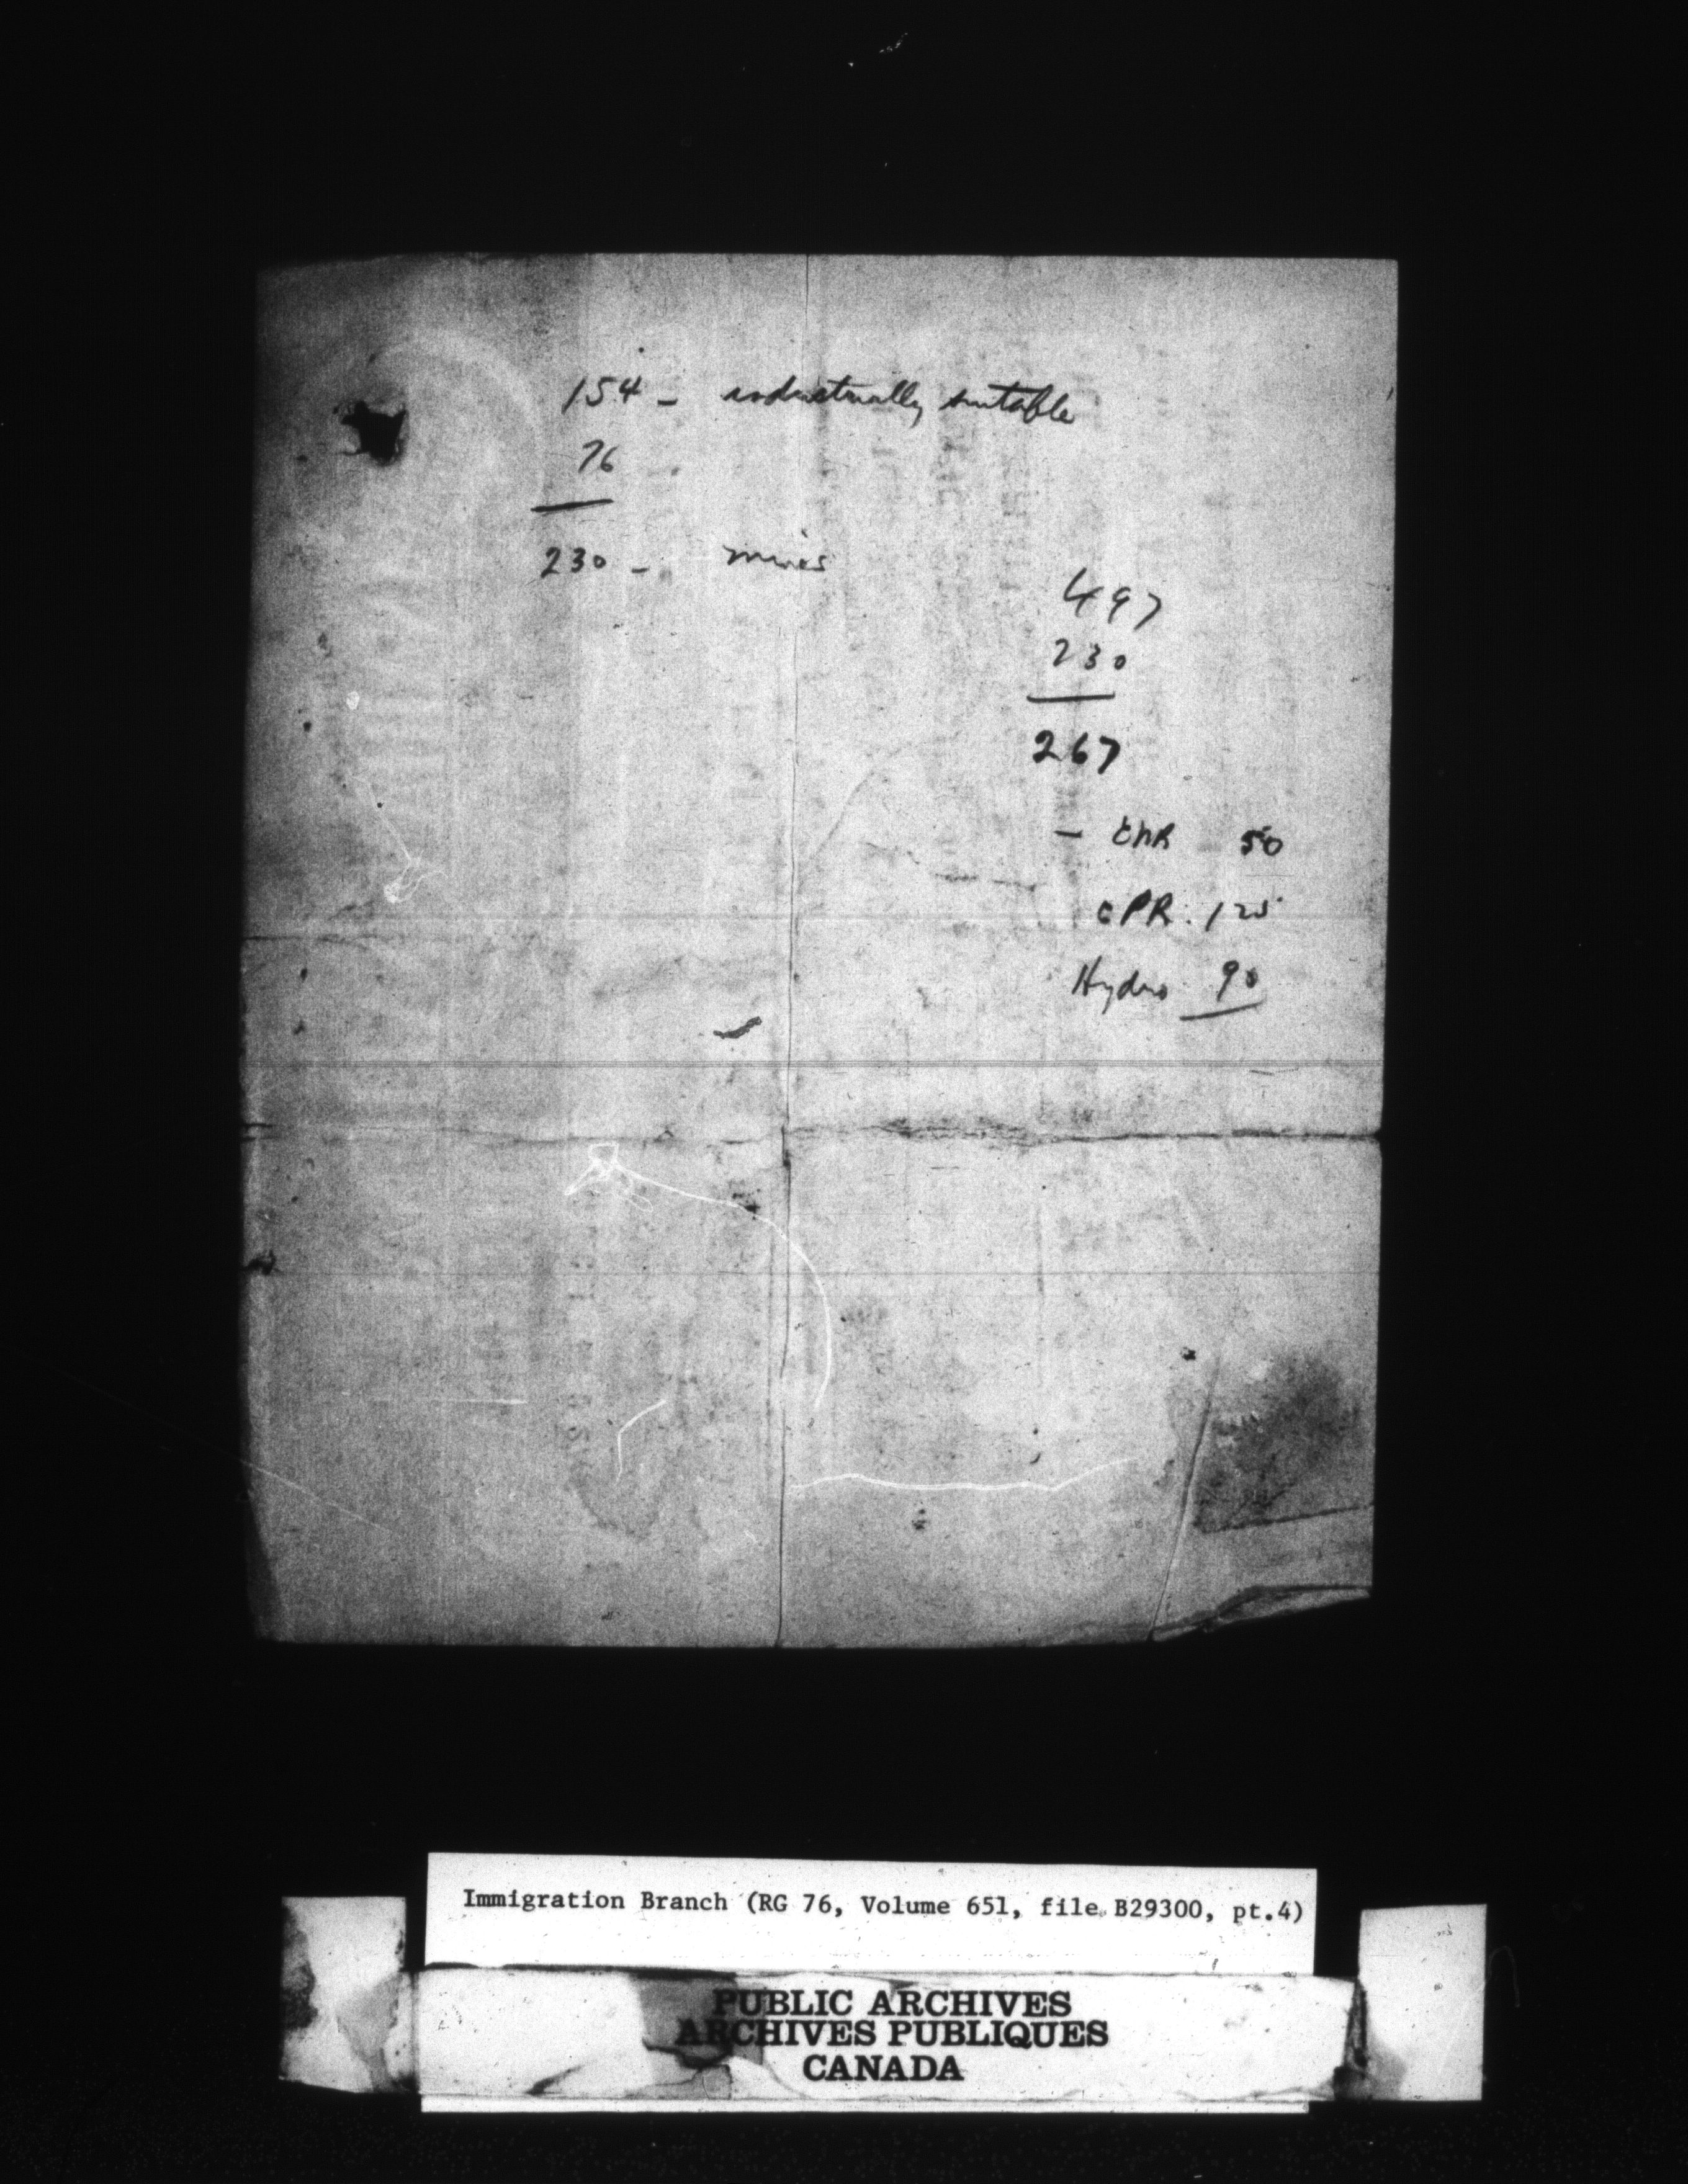 154 - industrially suitable
76
230 - mines
497
230
267
- CNR 50
CPR. 125
Hydro 90
Immigration Branch (RG 76, Volume 651, file B29300, pt.4)
PUBLIC ARCHIVES
ARCHIVES PUBLIQUES
CANADA